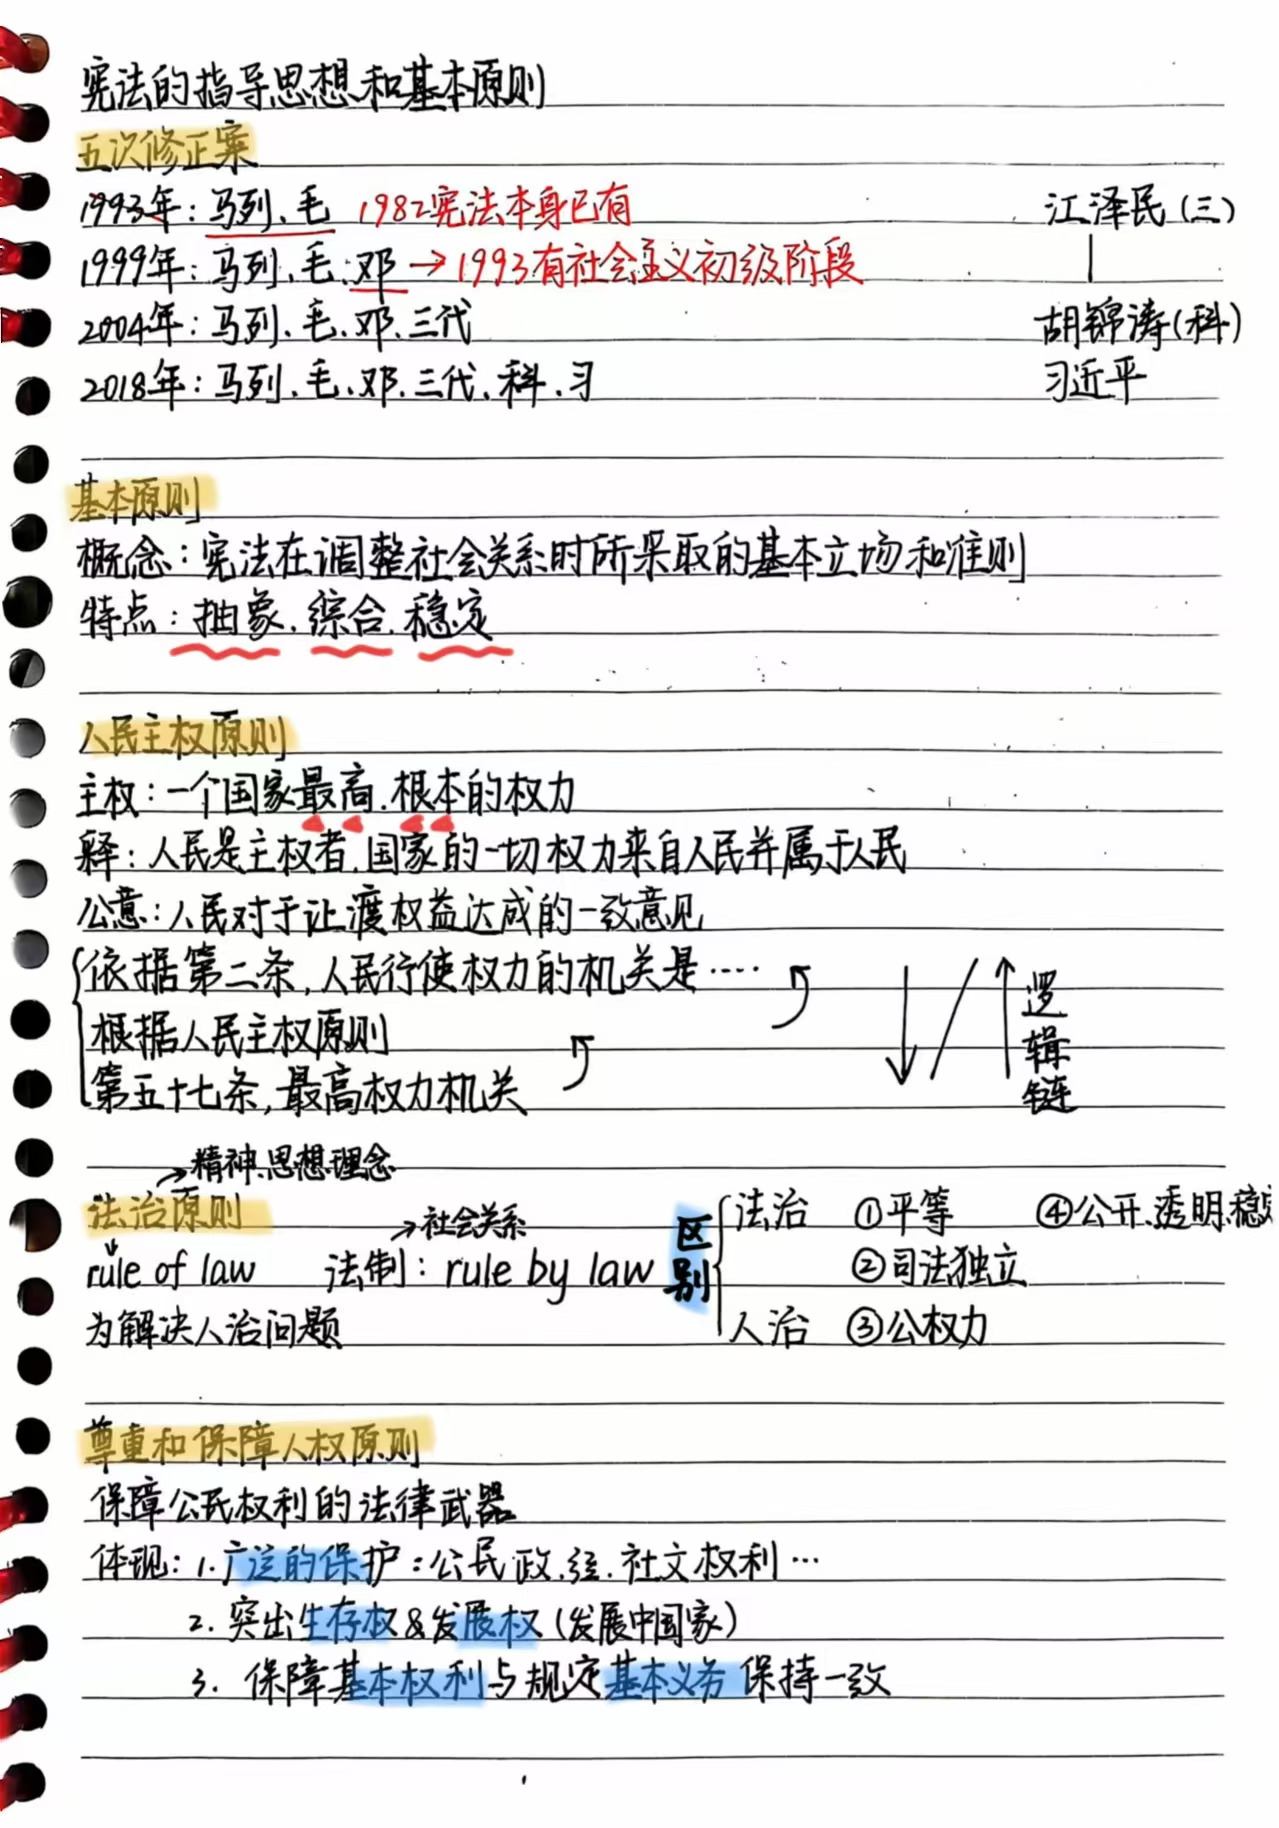 宪法的指导思想和基本原则
五次修正案
1993年：马列、毛 1982宪法本身已有 江泽民（三）
1999年：马列、毛、邓→1993有社会主义初级阶段
2004年：马列、毛、邓、三代 胡锦涛（科）
2018年：马列、毛、邓、三代、科、习 习近平
基本原则
概念：宪法在调整社会关系时所采取的基本立场和准则
特点：抽象、综合、稳定
人民主权原则
主权：一个国家最高、根本的权力
释：人民是主权者，国家的一切权力来自人民并属于人民
公意：人民对于让渡权益达成的一致意见
依据第二条，人民行使权力的机关是……
根据人民主权原则
第五十七条，最高权力机关
逻辑链
→精神、思想理念
法治原则 →社会关系 区别 法治 ①平等 ④公开、透明、稳定
rule of law 法制：rule by law ②司法独立
为解决人治问题 人治 ③公权力
尊重和保障人权原则
保障公民权利的法律武器
体现：1.广泛的保护：公民政、经、社文权利…
2.突出生存权&发展权（发展中国家）
3.保障基本权利与规定基本义务保持一致